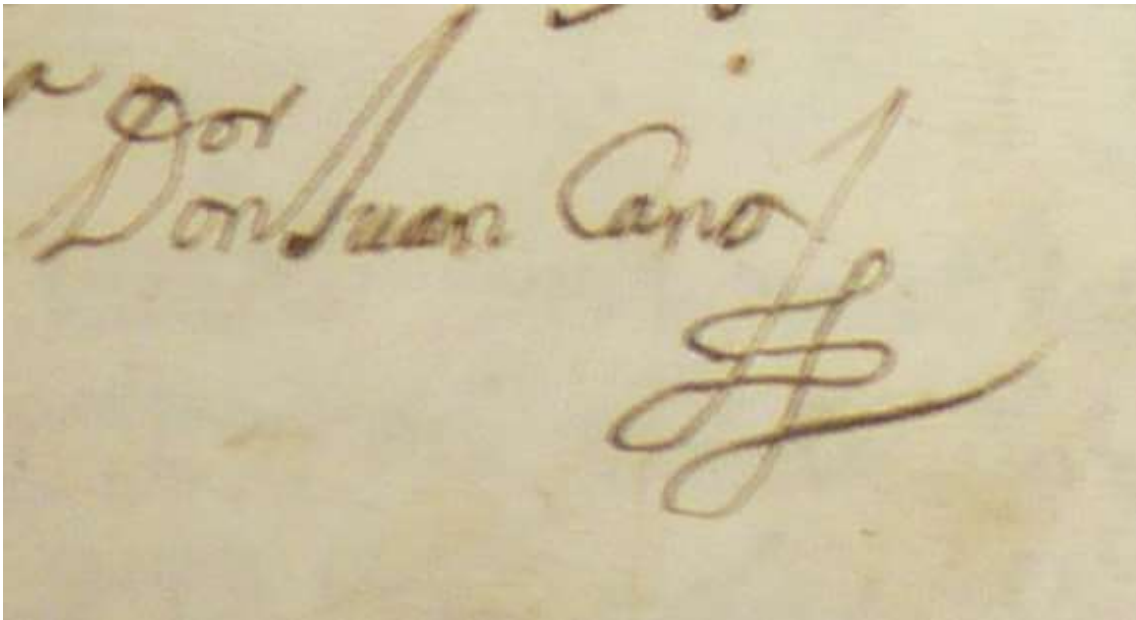 Dor
Don Juan Cano